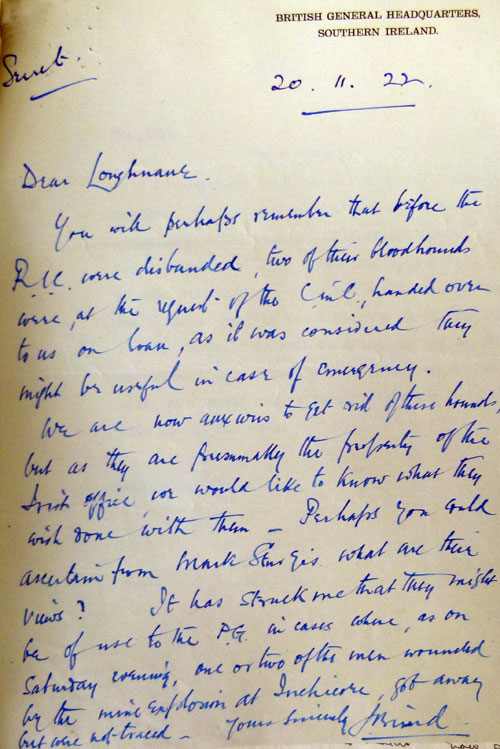 BRITISH GENERAL HEADQUARTERS,
SOUTHERN IRELAND.
Secret.
20. 11. 22.
Dear Loughnane.
You will perhaps remember that before the
R.I.C. were disbanded, two of their bloodhounds
were, at the request of the C in C, handed over
to us on loan, as it was considered they
might be useful in case of emergency.
We are now anxious to get rid of these hounds,
but as they are presumably the property of the
Irish office, we would like to know what they
wish done with them – Perhaps you could
ascertain from Mark Sturgis what are their
views? It has struck me that they might
be of use to the P.G. in cases where, as on
Saturday evening, one or two of the men wounded
by the mine explosion at Inchicore, got away
but were not traced –
Yours sincerely